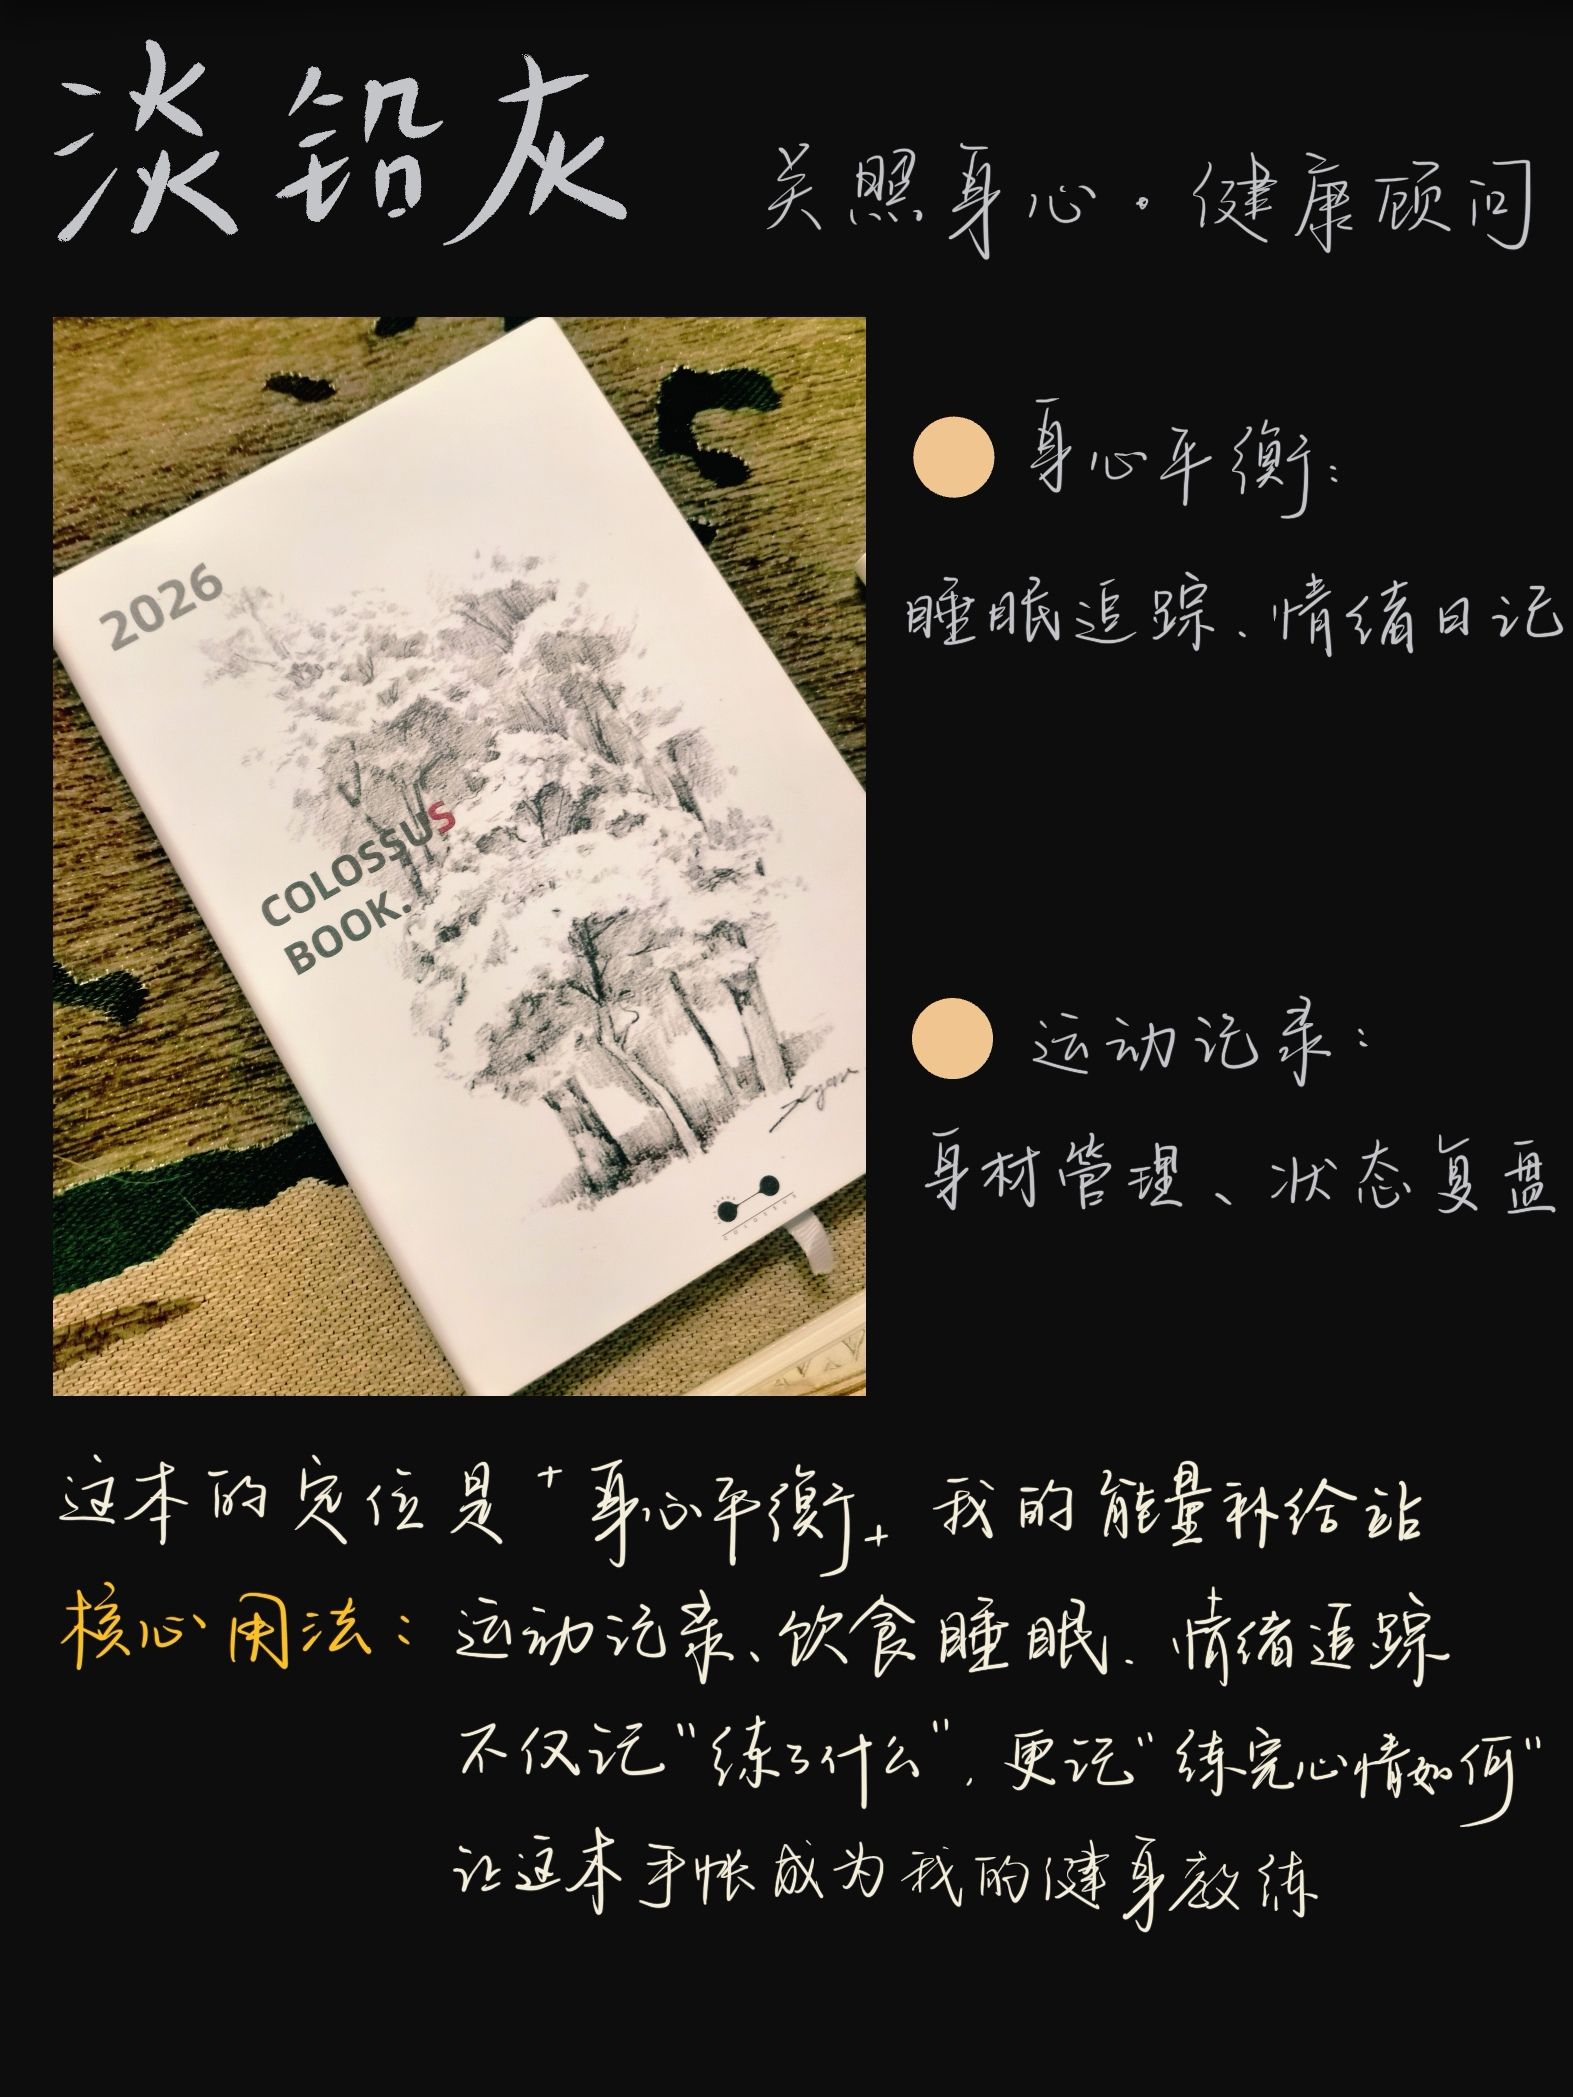 淡铅灰
关照身心·健康顾问
2026
COLOSSUS
BOOK.
COLOSSUS
身心平衡：
睡眠追踪、情绪日记
运动记录：
身材管理、状态复盘
这本的定位是“身心平衡” 我的能量补给站
核心用法：运动记录、饮食睡眠、情绪追踪
不仅记“练了什么”，更记“练完心情如何”
让这本手帐成为我的健身教练